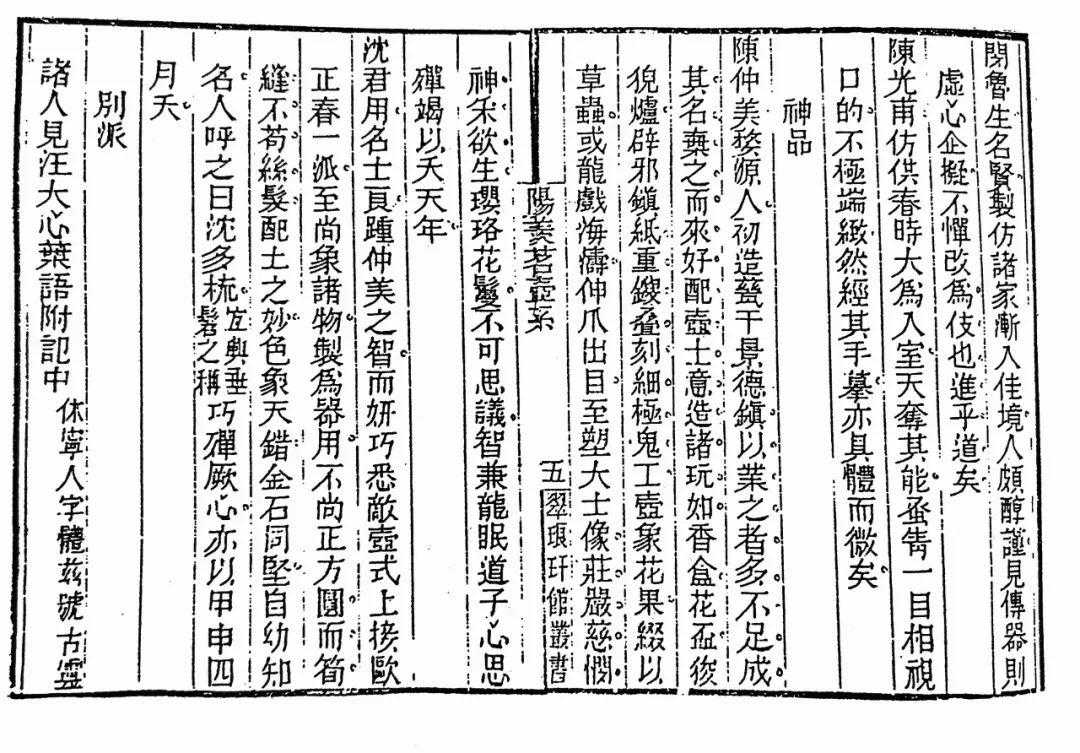 閔魯生名賢製仿諸家漸入佳境人頗醇謹見傳器則
虛心企擬不憚改爲伎也進乎道矣
陳光甫仿供春時大爲入室天奪其能蚤眚一目相視
口的不極端緻然經其手摹亦具體而微矣
神品
陳仲美婺源人初造瓷于景德鎮以業之者多不足成
其名棄之而來好配壺土意造諸玩如香盒花盃狻
猊爐辟邪鎮紙重鎪疊刻細極鬼工壺象花果綴以
草蟲或龍戲海濤伸爪出目至塑大士像莊嚴慈憫
陽羨茗壺系 五 翠琅玕館叢書
神采欲生瓔珞花鬘不可思議智兼龍眠道子心思
殫竭以夭天年
沈君用名士良踵仲美之智而妍巧悉敵壺式上接歐
正春一派至尚象諸物製爲器用不尚正方圓而筍
縫不苟絲髮配土之妙色象天錯金石同堅自幼知
名人呼之曰沈多梳宜興垂髫之稱巧殫厥心亦以甲申四
月夭
別派
諸人見汪大心葉語附記中休寧人字體茲號古靈